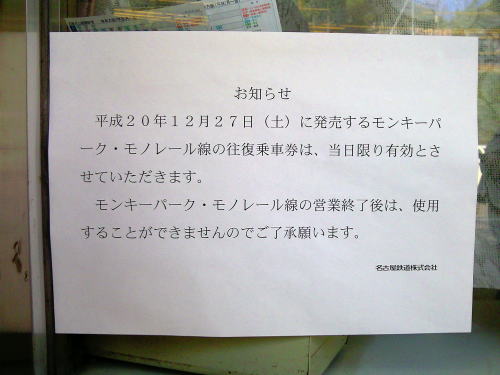 お知らせ
平成２０年１２月２７日（土）に発売するモンキーパ
ーク・モノレール線の往復乗車券は、当日限り有効とさ
せていただきます。
モンキーパーク・モノレール線の営業終了後は、使用
することができませんのでご了承願います。
名古屋鉄道株式会社